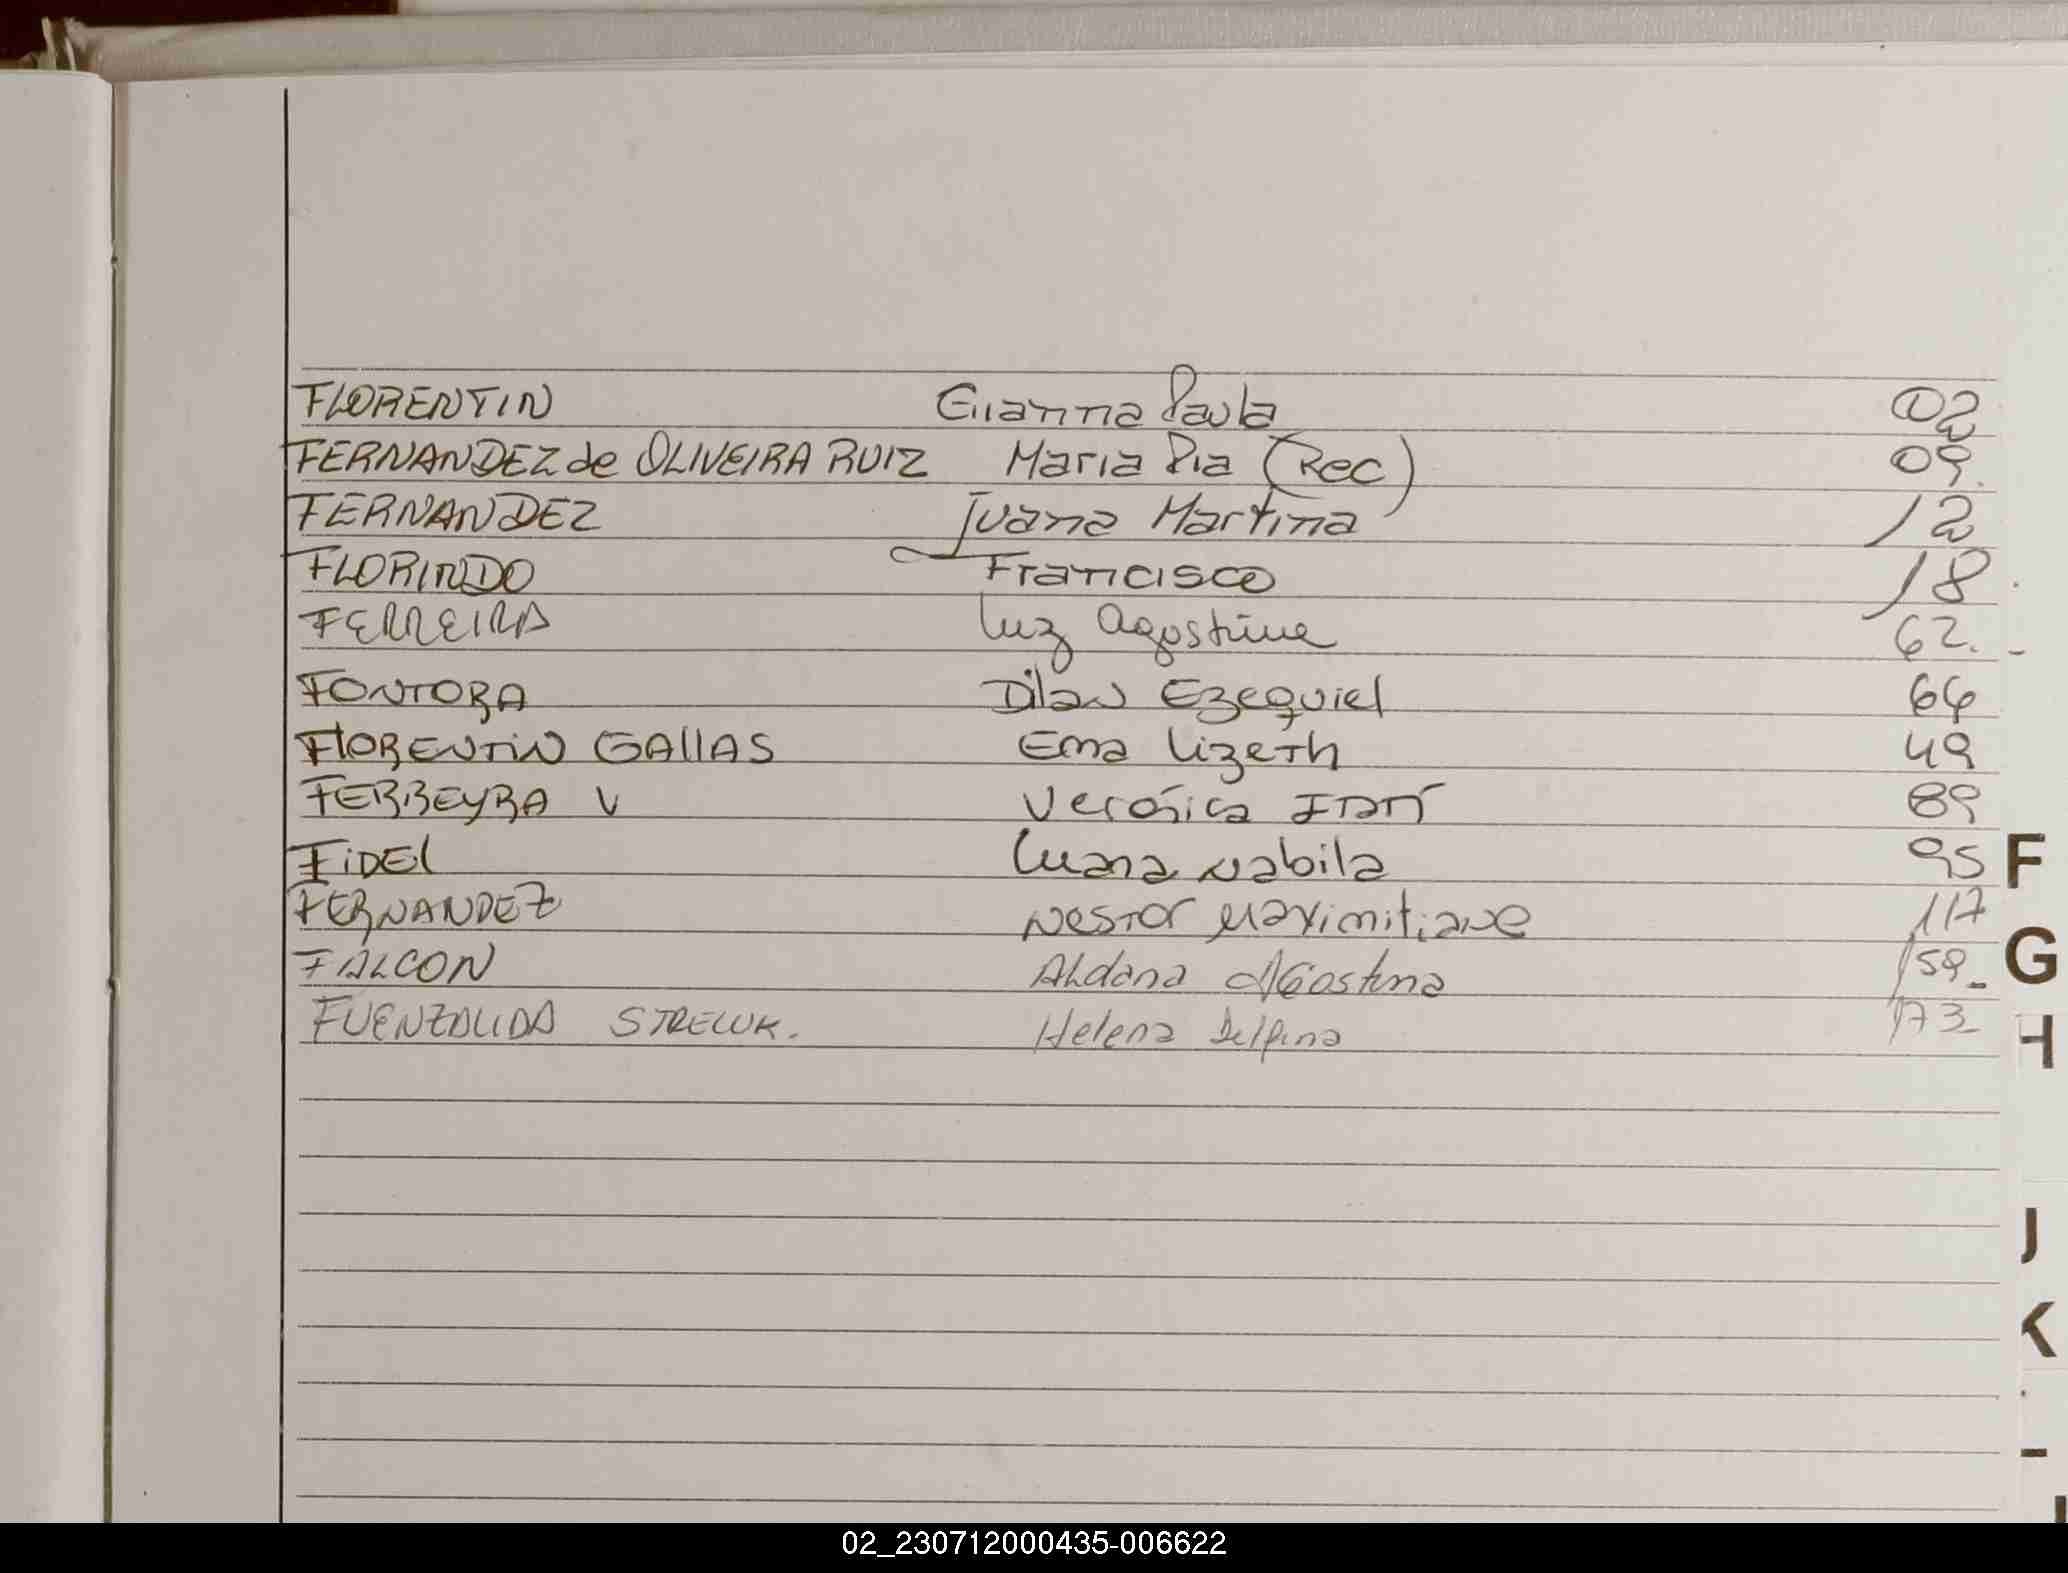 FLORENTIN Gianna Paula 02
FERNANDEZ de OLIVEIRA RUIZ Maria Pia (Rec) 09.
FERNANDEZ Juana Martina 12
FLORINDO Francisco 18
FERREIRA Luz Agostina 62.-
FONTORA Dilan Ezequiel 64
FlORENTiN GAllAS Ema Lizeth 49
FERREYRA V Verónica 89
FiDEl Luana Nabila 95
F
FERNANDEZ Nestor Maximiliano 117
FALCON Aldana AGostina 159-
G
FUENZALIDA STRELUK. Helena Delfina 173
H
J
K
02_230712000435-006622